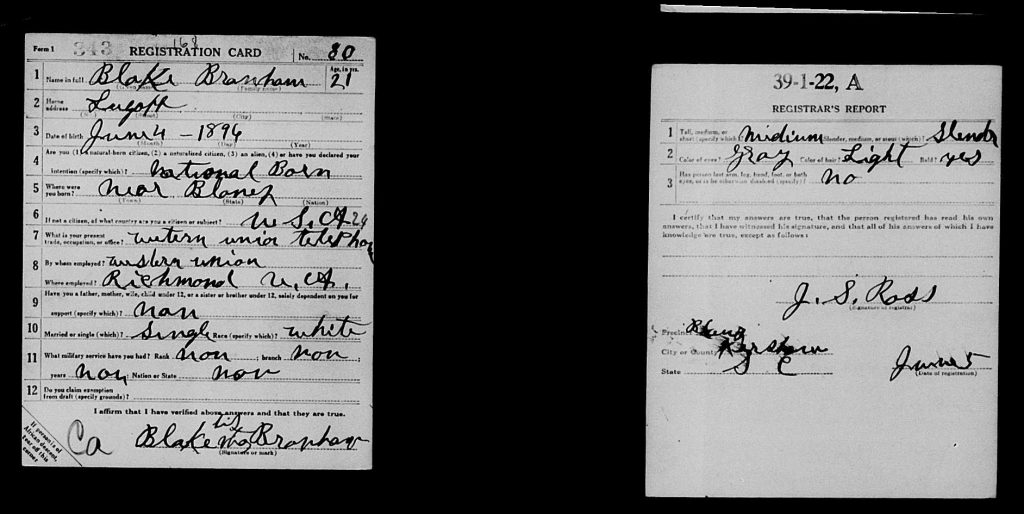 Form 1 343 168 REGISTRATION CARD No. 80
1 Name in full Blake Branham Age, in yrs. 21
(Given name) (Family name)
2 Home address Lugoff
(No.) (Street) (City) (State)
3 Date of birth June 4 - 1896
(Month) (Day) (Year)
4 Are you (1) a natural-born citizen, (2) a naturalized citizen, (3) an alien, (4) or have you declared your
intention (specify which)? National Born
5 Where were you born? Near Blaney
(Town) (State) (Nation)
6 If not a citizen, of what country are you a citizen or subject? U S. A
7 What is your present trade, occupation, or office? wetern union telephon
8 By whom employed? western union
Where employed? Richmond
9 Have you a father, mother, wife, child under 12, or a sister or brother under 12, solely dependent on you for
support (specify which)? non
10 Married or single (which)? Single Race (specify which)? white
11 What military service have you had? Rank non ; branch non ;
years non ; Nation or State non
12 Do you claim exemption from draft (specify grounds)?
I affirm that I have verified above answers and that they are true.
If person is of African descent, tear off this corner
Ca Blake his Branham
(Signature or mark)
39-1-22, A
REGISTRAR'S REPORT
1 Tall, medium, or short (specify which)? Midium Slender, medium, or stout (which)? Slender
2 Color of eyes? Gray Color of hair? Light Bald? yes
3 Has person lost arm, leg, hand, foot, or both eyes, or is he otherwise disabled (specify)? no
I certify that my answers are true, that the person registered has read his own
answers, that I have witnessed his signature, and that all of his answers of which I have
knowledge are true, except as follows:
J. S. Ross
(Signature of registrar)
Precinct Blany
City or County Kershaw
State S C
June 5
(Date of registration)